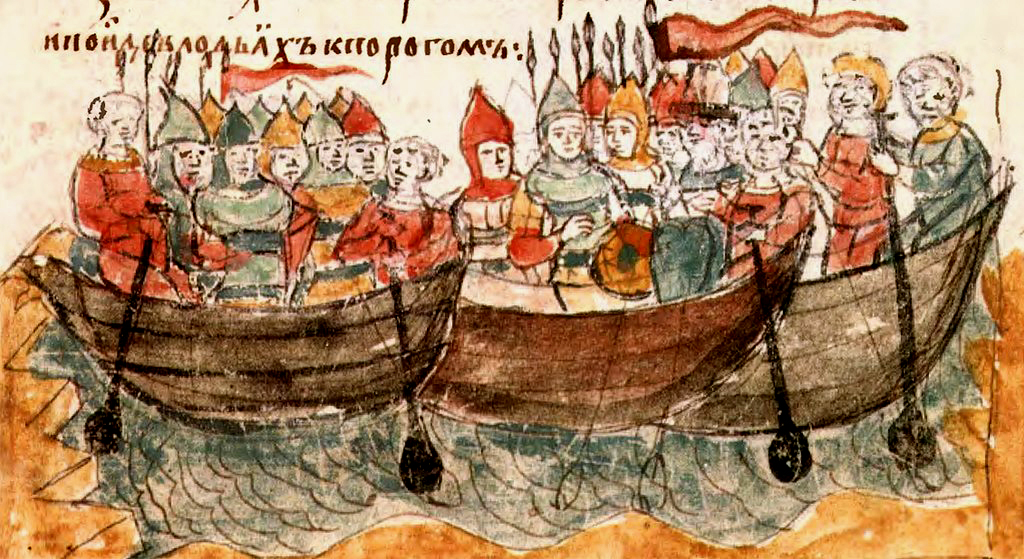 и поидє в лодьꙗхъ к порогомъ: